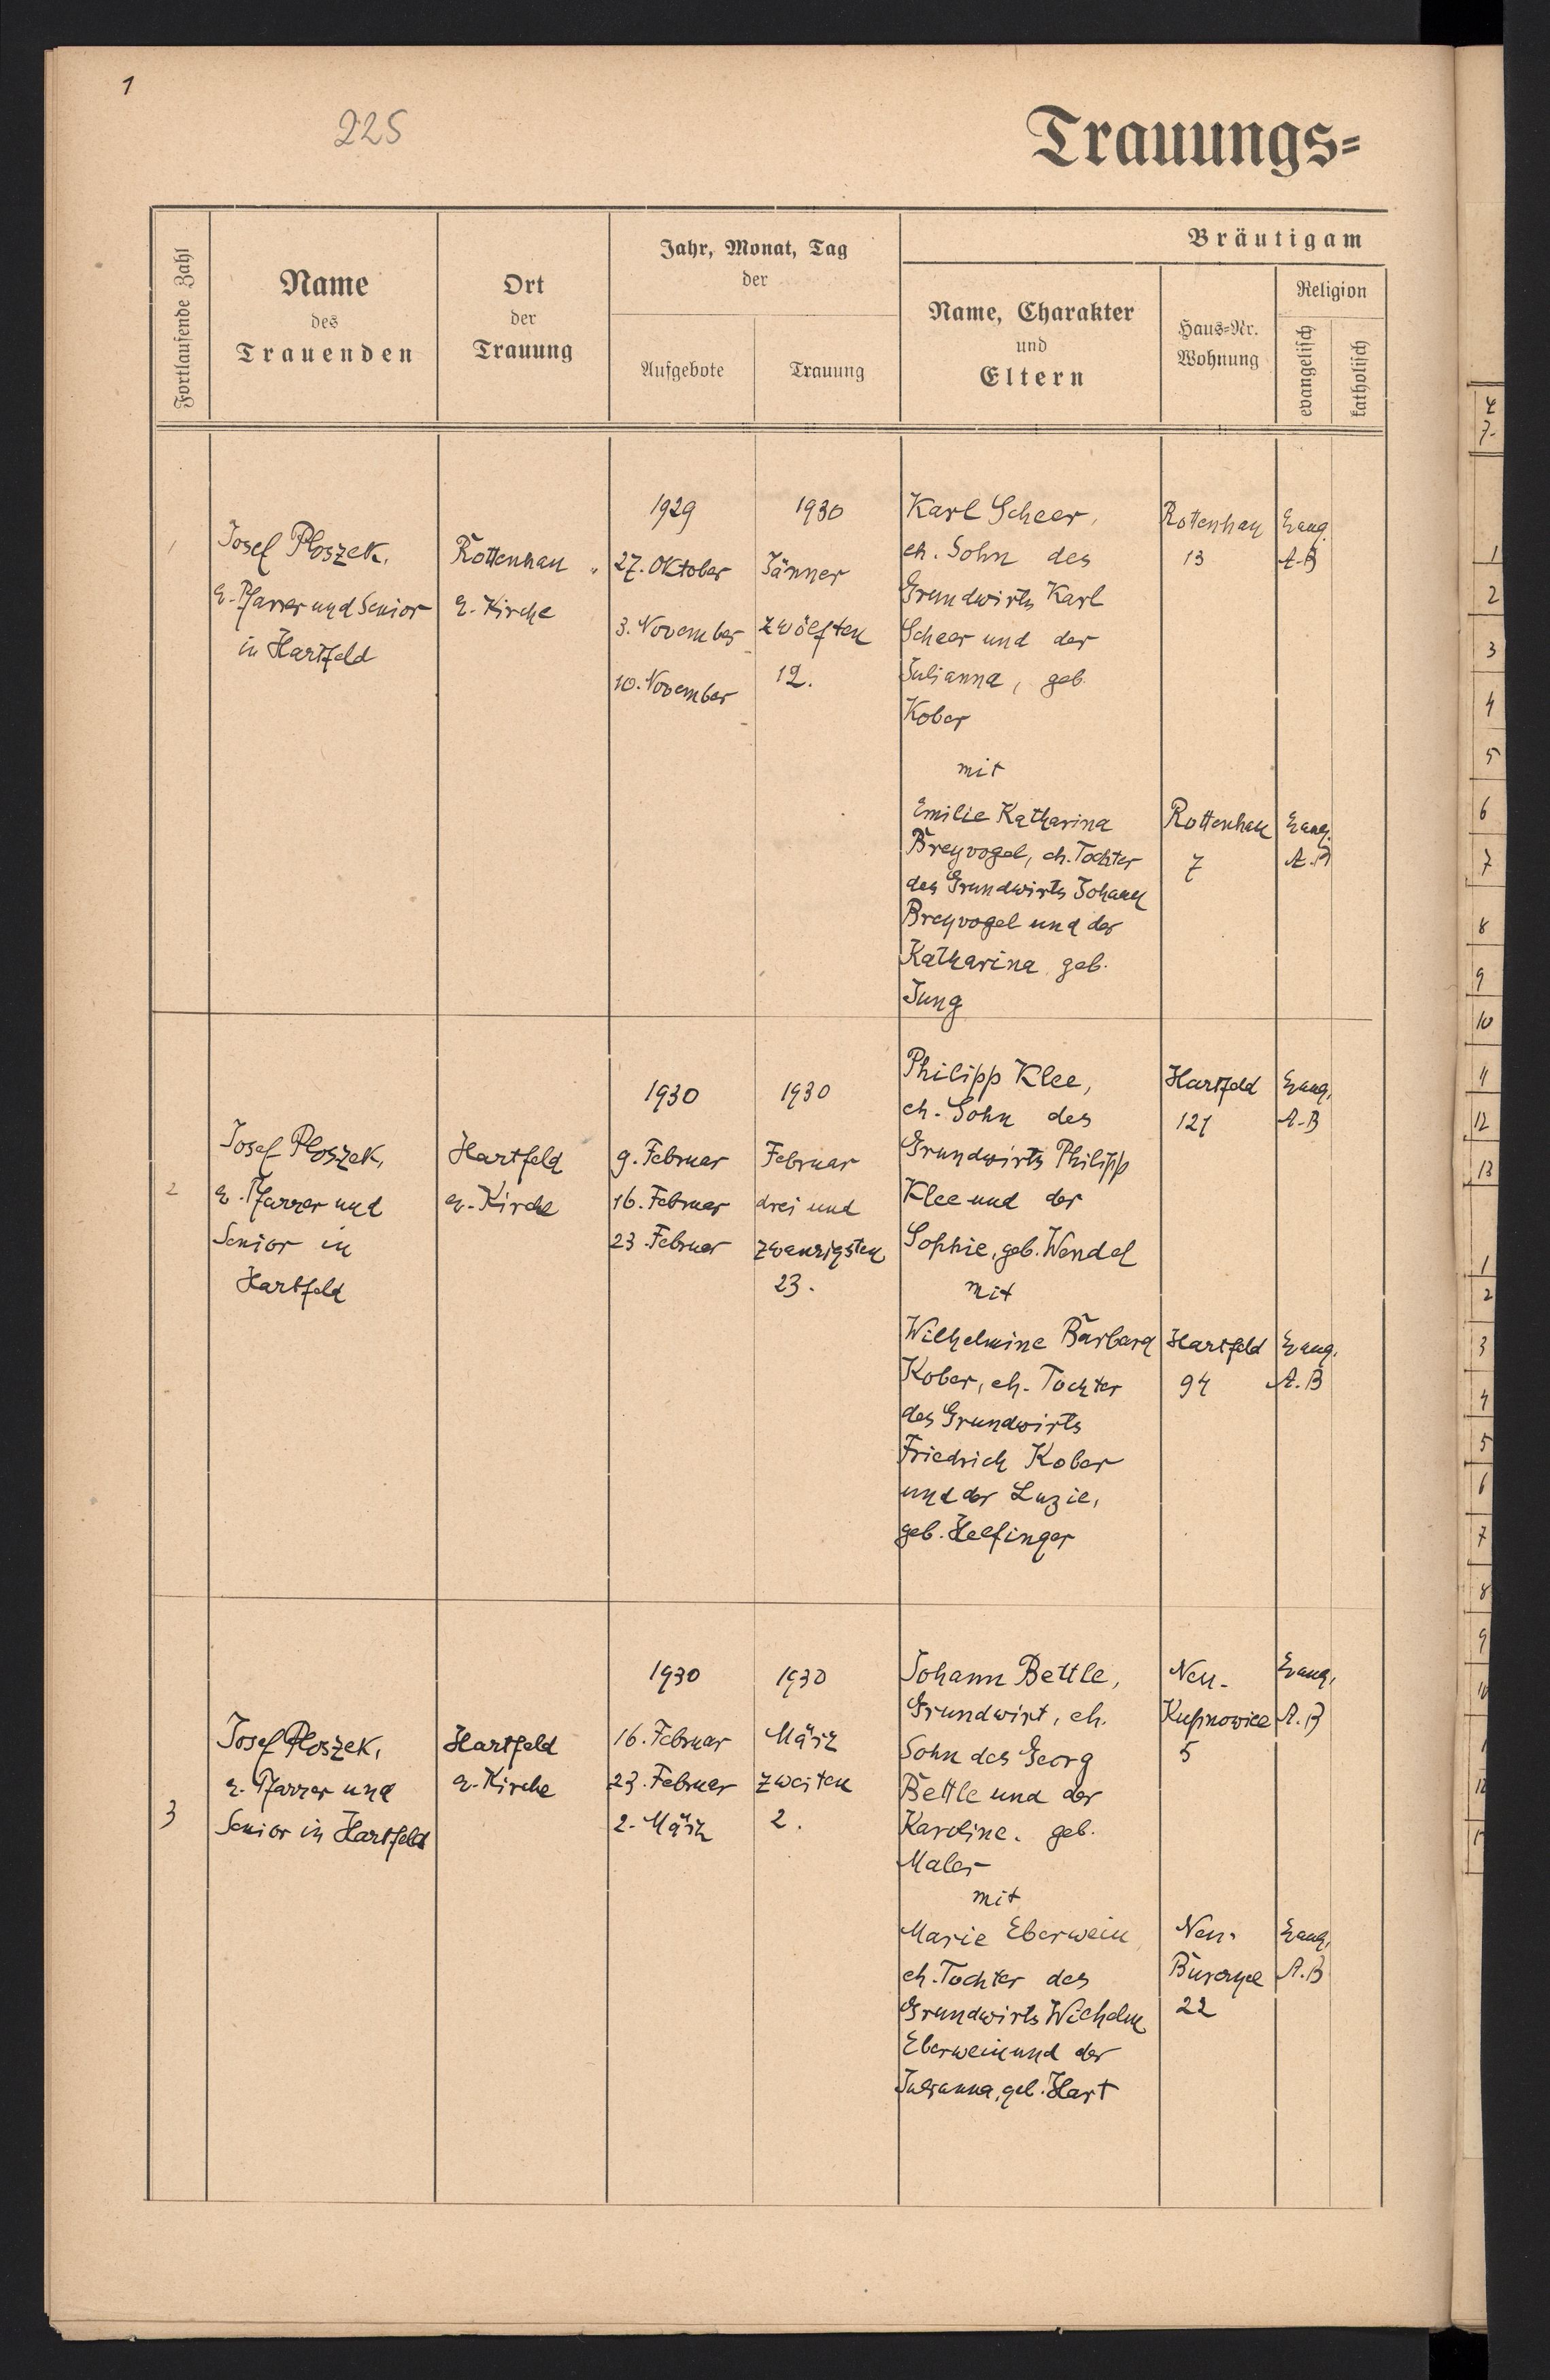 1
225
Trauungs=
Fortlaufende Zahl
Name
des
Trauenden
Ort
der
Trauung
Jahr, Monat, Tag
der
Aufgebote
Trauung
Bräutigam
Name, Charakter
und
Eltern
Haus=Nr.
Wohnung
Religion
evangelisch
katholisch
1
Josef Ploszek,
e. Pfarrer und Senior
in Hartfeld
Rottenhan
e. Kirche
1929
27. Oktober
3. November
10. November
1930
Jänner
zwölften
12.
Karl Scheer,
eh. Sohn des
Grundwirts Karl
Scheer und der
Julianna, geb.
Kober
mit
Emilie Katharina
Breyvogel, eh. Tochter
des Grundwirts Johann
Breyvogel und der
Katharina geb.
Jung
Rottenhan
13
Evang.
A.B
Rottenhan
7
Evang.
A.B
2
Josef Ploszek,
e. Pfarrer und
Senior in
Hartfeld
Hartfeld
ev. Kirche
1930
9. Februar
16. Februar
23. Februar
1930
Februar
drei und
zwanzigsten
23.
Philipp Klee,
eh. Sohn des
Grundwirts Philipp
Klee und der
Sophie, geb. Wendel
mit
Wilhelmine Barbara
Kober, eh. Tochter
des Grundwirts
Friedrich Kober
und der Luzie,
geb. Helfinger
Hartfeld
121
Evang.
A.B
Hartfeld
94
Evang.
A.B
3
Josef Ploszek,
e. Pfarrer und
Senior in Hartfeld
Hartfeld
ev. Kirche
1930
16. Februar
23. Februar
2. März
1930
März
zweiten
2.
Johann Bettle,
Grundwirt, eh.
Sohn des Georg
Bettle und der
Karoline. geb.
Maler
mit
Marie Eberwein
eh. Tochter des
Grundwirts Wilhelm
Eberwein und der
Julianna, geb. Hart
Neu-
Kupnowice
5
Evang.
A.B
Neu-
22
Evang.
A.B
1
2
3
4
5
6
7
8
9
10
11
12
13
1
2
3
4
5
6
7
8
9